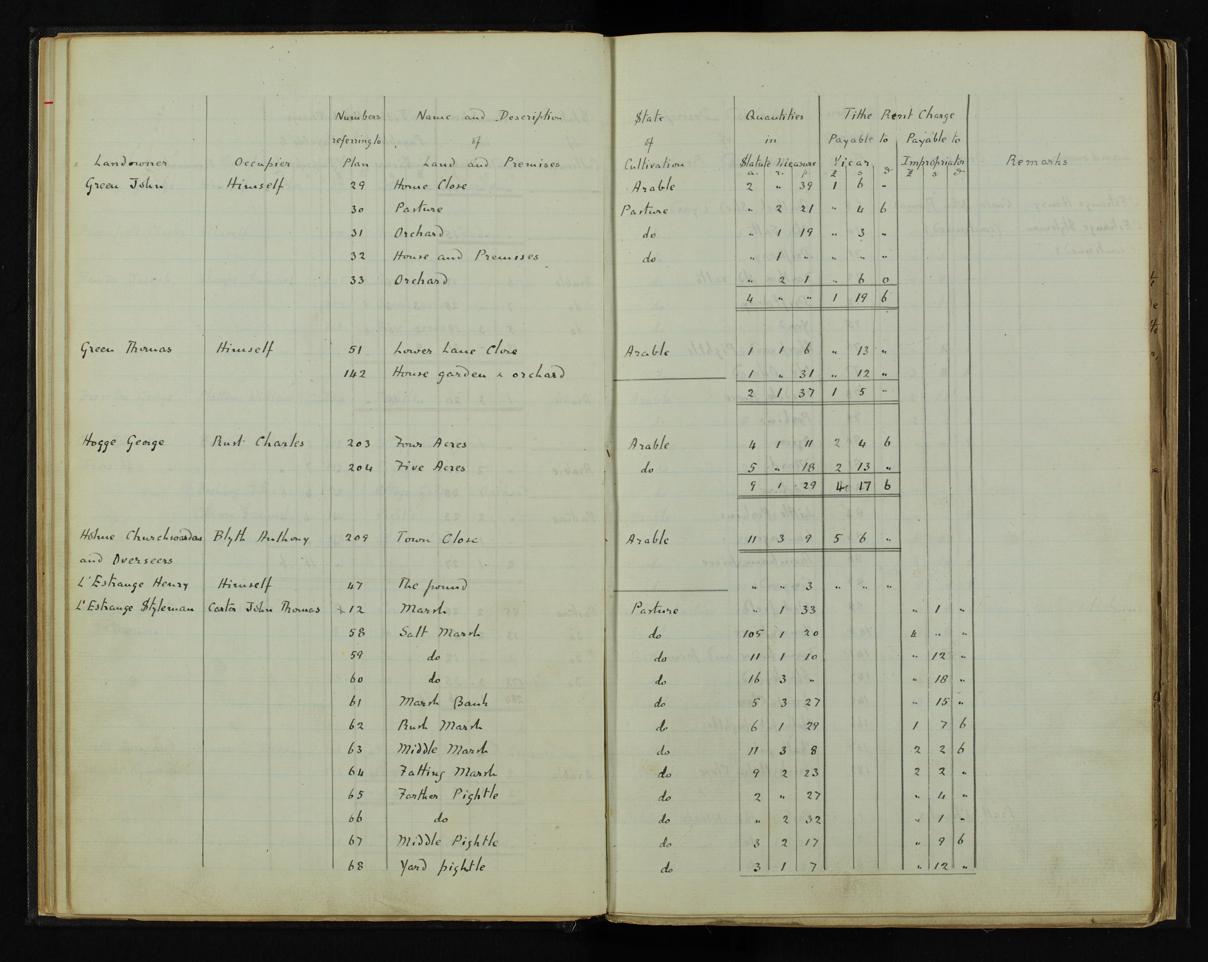 Numbers Name and Description State Quantities Tithe Rent Charge
referring to of of in Payable to Payable to
Landowner Occupier Plan Land and Premises Cultivation Statute Measure Vicar Impropriator Remarks
a. r. p. £ s d £ s d
Green John Himself 29 Home Close Arable 2 " 39 1 6 "
30 Pasture Pasture " 2 21 " 4 6
31 Orchard do " 1 19 " 3 "
32 House and Premises do " 1 " " " "
33 Orchard " 2 1 " 6 0
4 " " 1 19 6
Green Thomas Himself 51 Lower Lane Close Arable 1 1 6 " 13 "
142 House garden & orchard 1 " 31 " 12 "
2 1 37 1 5 "
Hogge George Rust Charles 203 Four Acres Arable 4 1 11 2 4 6
204 Five Acres do 5 " 18 2 13 "
9 1 29 4 17 6
Holme Churchwardas Blyth Anthony 209 Town Close Arable 11 3 9 5 6 "
and Overseers
L'Estrange Henry Himself 47 The pound " " 3 " " "
L'Estrange Styleman Castor John Thomas + 12 Marsh Pasture " 1 33 " 1 "
58 Salt Marsh do 105 1 20 4 " "
59 do do 11 1 10 " 12 "
60 do do 16 3 " " 18 "
61 Marsh Bank do 5 3 27 " 15 "
62 Rush Marsh do 6 1 29 1 7 6
63 Middle Marsh do 11 3 8 2 2 6
64 Fatting Marsh do 9 2 23 2 2 "
65 Farther Pightle do 2 " 27 " 4 "
66 do do " 2 32 " 1 "
67 Middle Pightle do 3 2 17 " 9 6
68 Yard pightle do 3 1 7 " 12 "